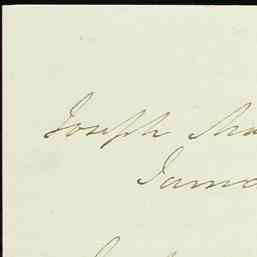 Joseph Sha
Jama